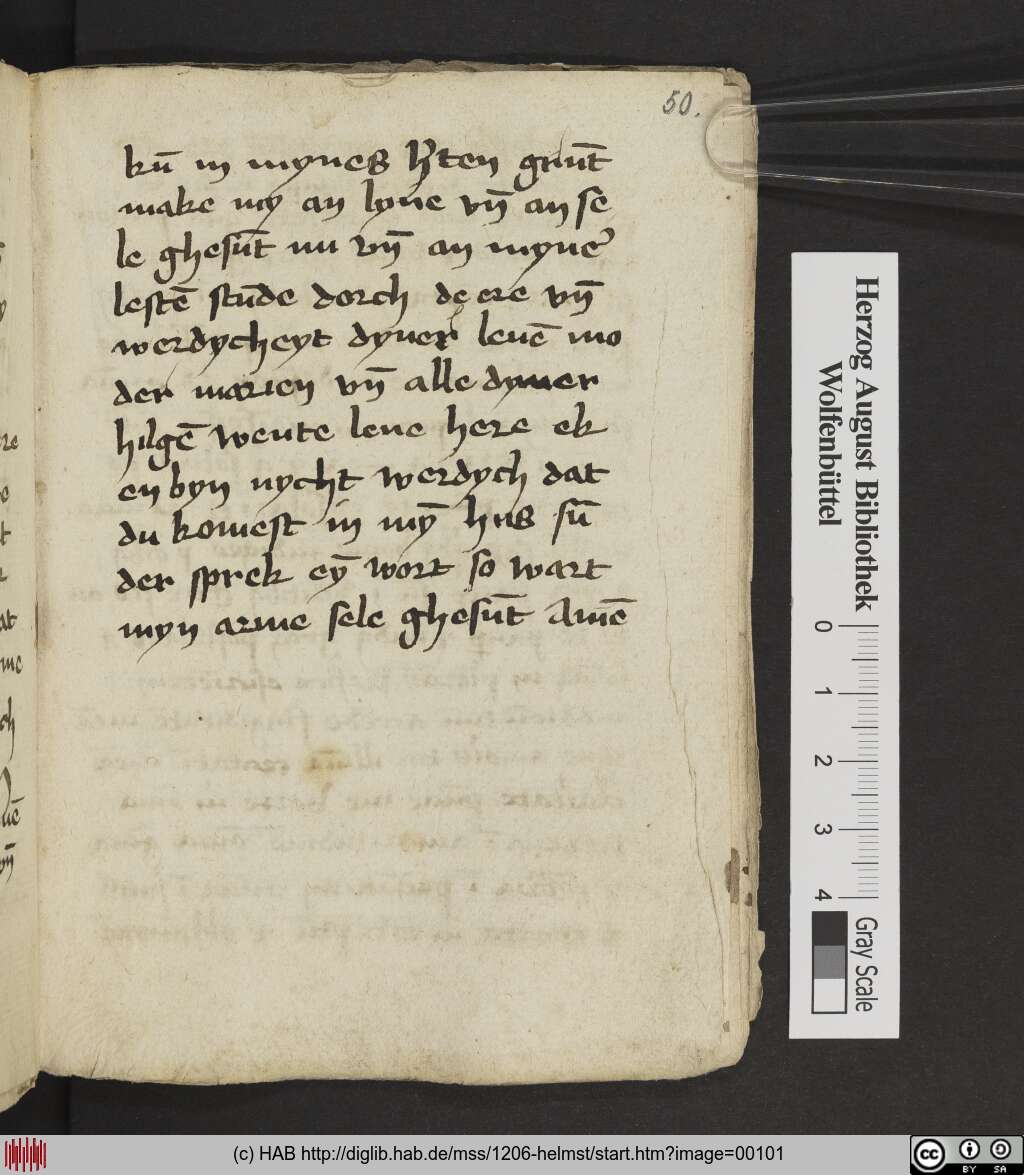 50.
kū in mynes h'ten grūt
make my an lyue vn̄ an se
le ghesūt nu vn̄ an myne'
lestē stūde dorch de ere vn̄
werdycheyt dyner leuē mo
der marien vn̄ alle dyner
hilgē wente leue here ek
en byn nycht werdych dat
du komest in my̅ hus sū
der sprek ey̅ wort so wart
myn arme sele ghesūt Amē
Herzog August Bibliothek
Wolfenbüttel
0 1 2 3 4
Gray Scale
(c) HAB http://diglib.hab.de/mss/1206-helmst/start.htm?image=00101
cc BY SA